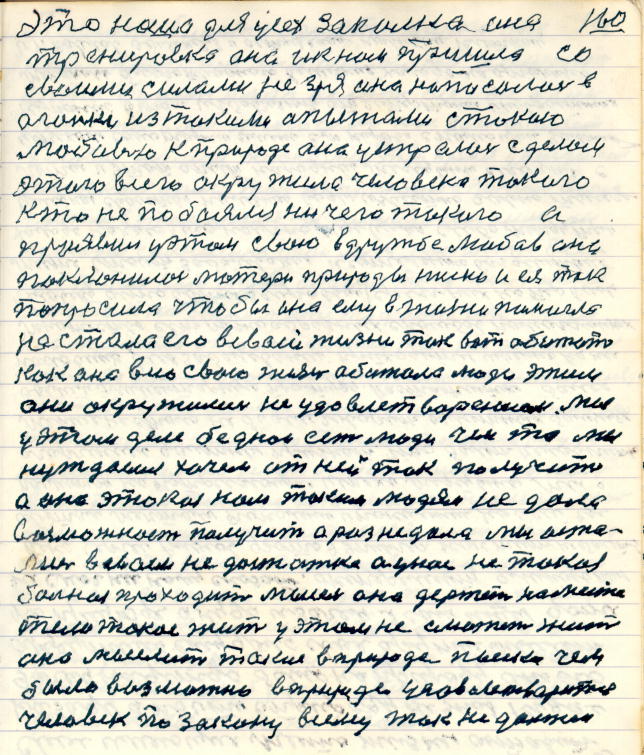 Это наша для усех закалка она 160
тренировка она и к нам пришла со
своими силами не зря она написалась в
из такими апытами с такою
любовью к природе она утралась сделам
этого всего окружила человека такого
кто не побоялся ни чего такого а
проявил у этом свою в дружбе любав она
поклонилась матери природы низко и ея так
попросила чтобы она ему в жизни помагла
не стала его в евоей жизни так вот абижать
как она всю свою жизнь абижала люди этим
они окружились не удовлетварением. мы
у этом деле бедное сет люди чем то мы
нуждаимся хочем от ней так получить
а она этокая нам таким людям не дала
возможност получит а раз недала мы аста-
лис в евоем не достатке а у нас не такая
болная проходит мысля она держет на месте
тело такое жит у этом не сможет жит
она мыслит такие в природе поиски чем
было возможно в природе удовлетварится
человек по закону всему так не должен